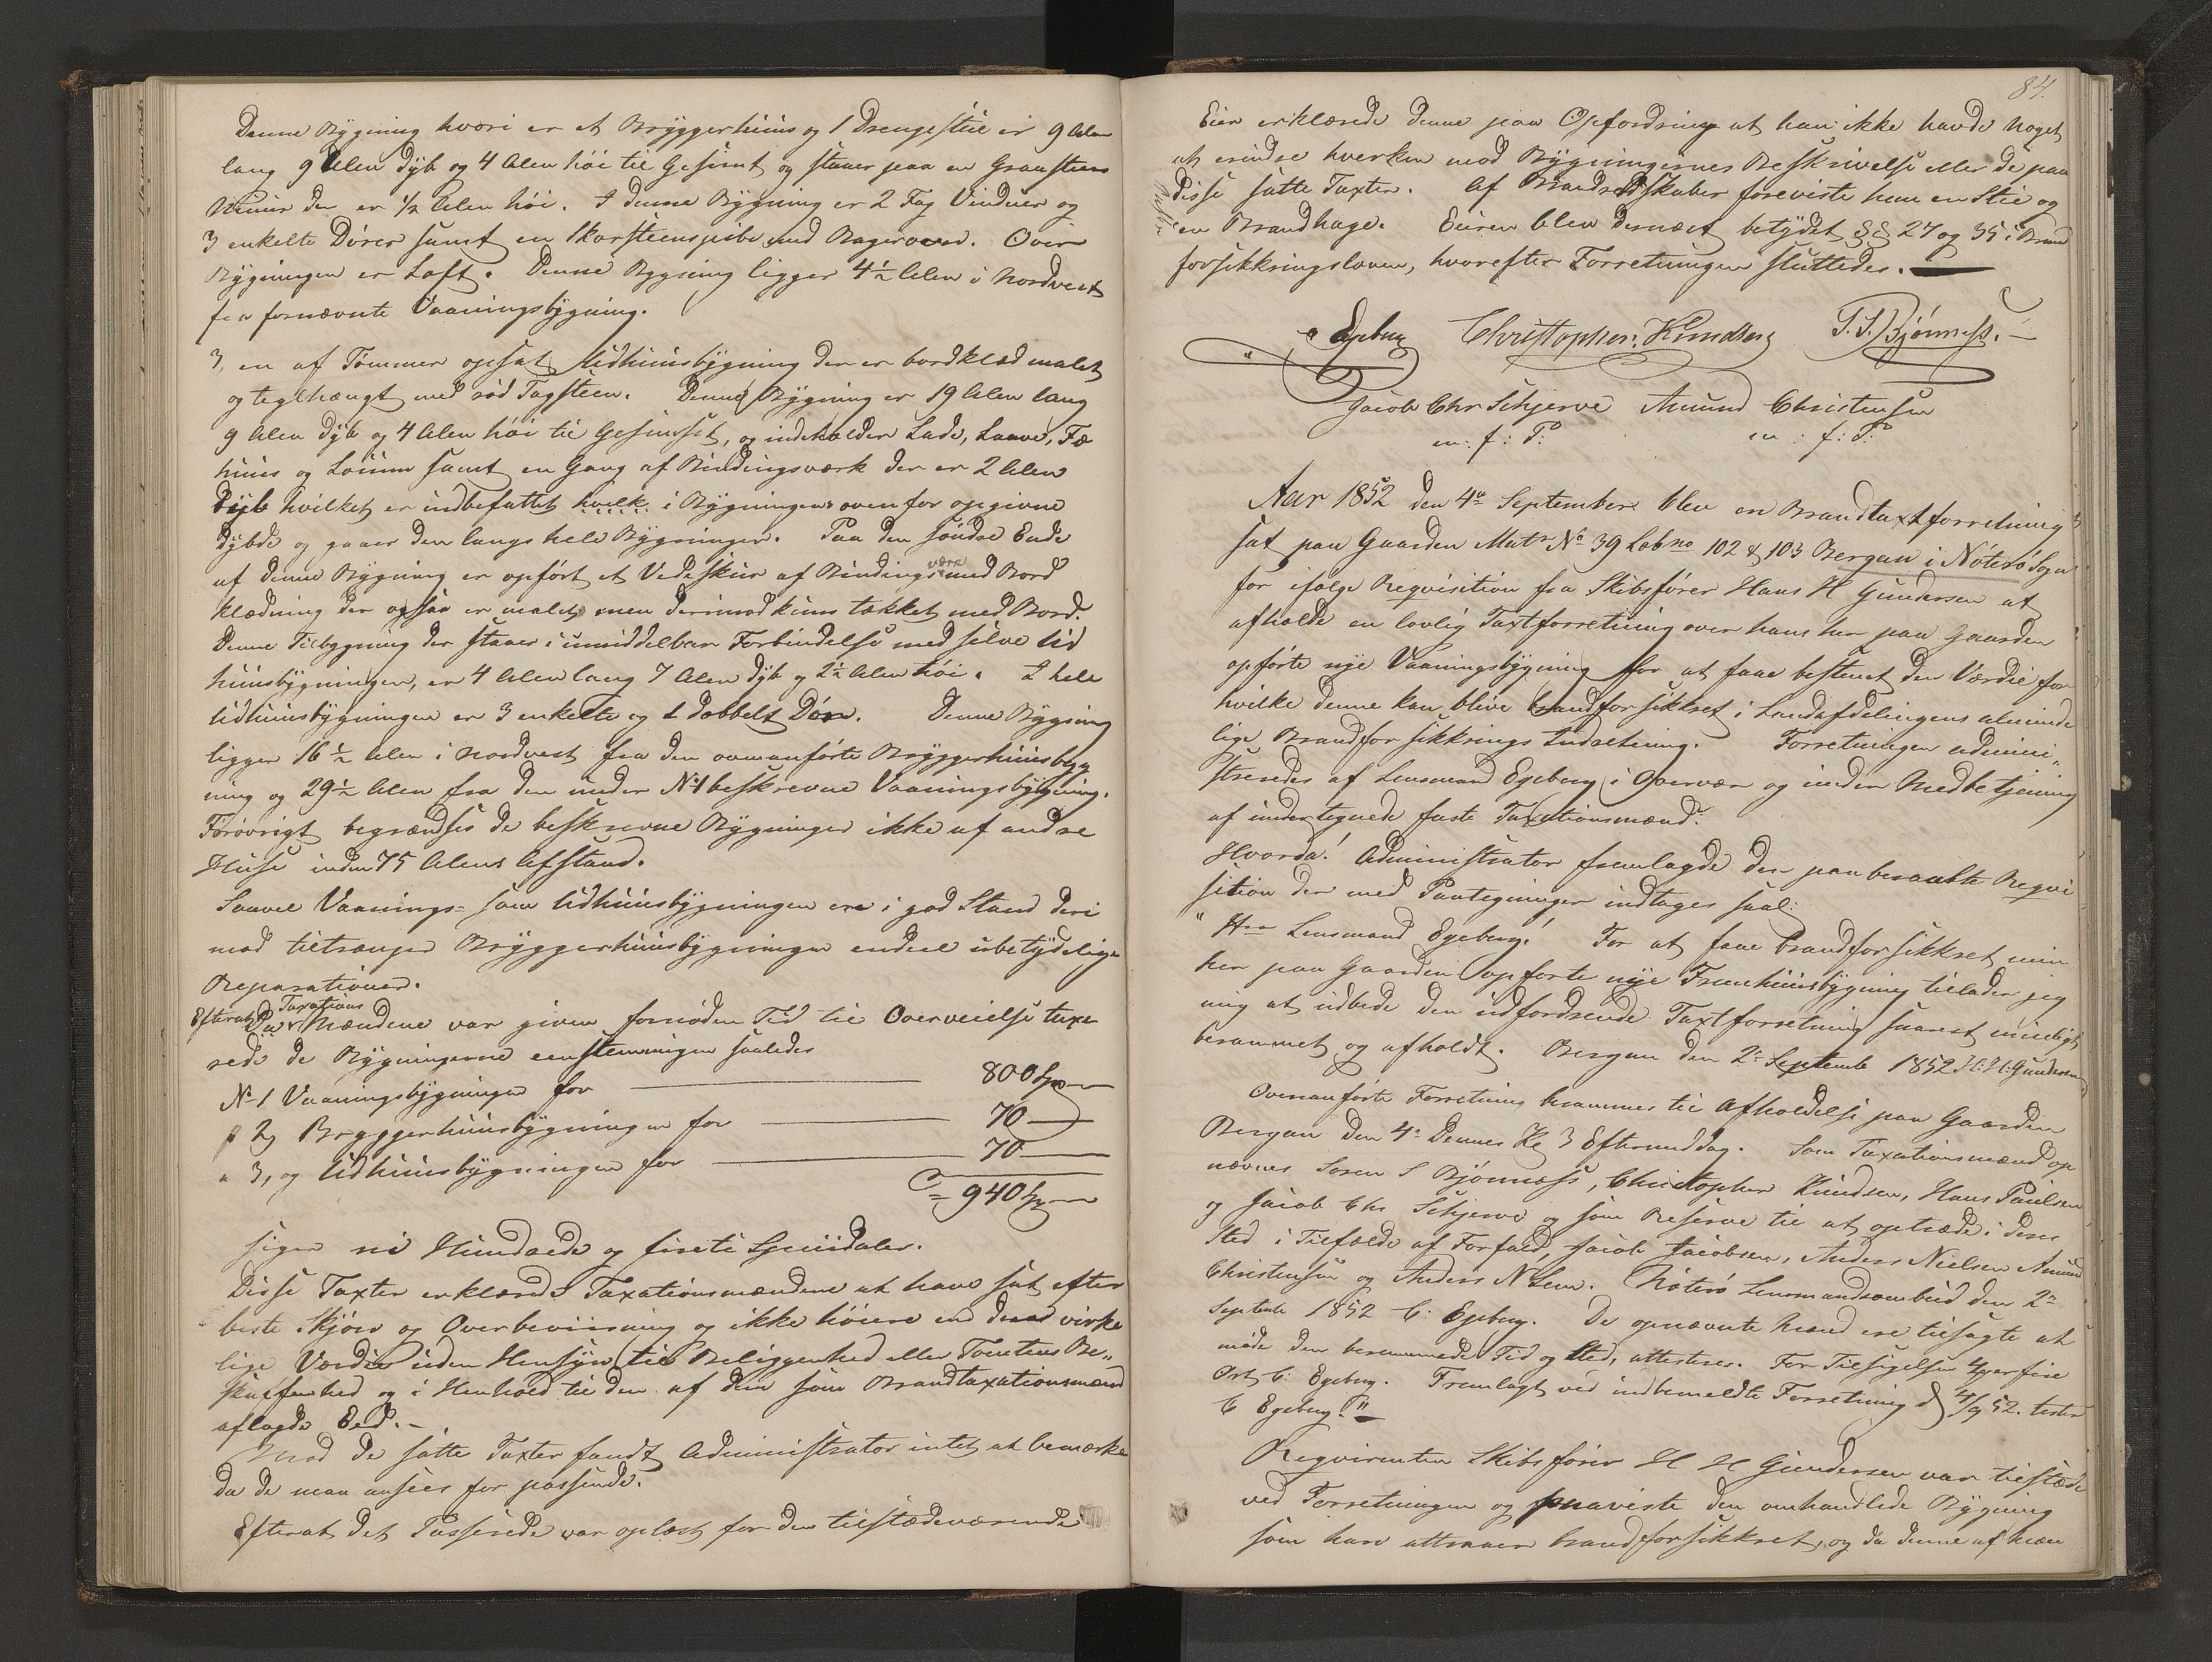 Denne Bygning hvori er et Bryggerhuus og 1 Drengestue er 9 Alen
lang 9 Alen dyb og 4 Alen höi til Gesimt og staaer paa en Graasteens
Muur der er 1/2 Alen höi. I denne Bygning er 2 Fag Vinduer og
3 enkelte Dörer samt en Skorsteenspibe med Bagerovn. Over
Bygningen er Loft. Denne Bygning ligger 4 1/2 Alen i Nordvest
fra fornævnte Vaaningsbygning.
3, en af Tømmer opsat Udhuusbygning der er bordklæd malet
og teglhængt med röd Tagsteen. Denne Bygning er 19 Alen lang
9 Alen dyb og 4 Alen höi til Gesimset, og indeholder Lade, Laave, Fæ
huus og Löeum samt en Gang af Bindingsværk der er 2 Alen
dyb hvilket er indbefattet hvilk i Bygningens ovenfor opgivne
Dybde og gaaer den langs hele Bygningen. Paa den söndre Ende
af denne Bygning er opfört et Vedeskuur af Bindingsværk med Bord
klædning der ogsaa er malet men derimod kuns tækket med Bord.
Denne Tilbygning der staaer i umiddelbar Forbindelse med selve Ud
huusbygningen, er 4 Alen lang 7 Alen dyb og 2 1/2 Alen höi. I hele
Udhuusbygningen er 3 enkelte og 1 dobbelt Dör. Denne Bygning
ligger 16 1/2 Alen i Nordvest fra den ovenanförte Bryggerhuusbyg
ning og 29 1/2 Alen fra den under No 1 beskrevne Vaaningsbygning.
Forövrigt begrændses de beskrevne Bygninger ikke af andre
Huse inden 75 Alens Afstand.
Saavel Vaanings- som Udhuusbygningen ere i god Stand deri
mod tiltrænger Bryggerhuusbygningen endeel ubetydelige
Reparationer.
Efterat Taxations Mændene var given fornöden Tid til Overveielse taxe
rede de Bygningerne eenstemmigen saaledes
No 1 Vaaningsbygningen for 800 Spd
" 2, Bryggerhuusbygningen for 70
" 3, og Udhuusbygningen for 70
= 940 Spd
siger ni Hundrede og fireti Speciedaler.
Disse Taxter erklærede Taxationsmændene at have sat efter
beste Skjön og Overbeviisning og ikke höiere end deres virke
lige Værdie uden Hensyn til Beliggenhed eller Tomtens Be-
skaffenhed og i Henhold til den af dem som Brandtaxationsmænd
aflagde Eed.-
Mod de satte Taxter fandt Administrator intet at bemærke
da de maa ansees for passende.
Efterat det Passerede var oplæst for den tilstædeværende
84.
Eier erklærede denne paa Opfordring at han ikke havde noget
at erindre hverken mod Bygningernes Beskrivelse eller de paa
disse satte Taxter. Af Brandredskaber foreviste han en Stie og
en Brandhage. Eieren blev dernæst betydet §§ 27 og 35 i Brand
forsikkringsloven, hvorefter Forretningen sluttedes.
Egeberg Christopher Knudsen S. S. Bjönness.
Jacob Chr Schjerve Amund Christensen
m: f: P: m: f: P:
Aar 1852 den 4de September blev en Brandtaxtforretning
sat paa Gaarden Matr No 39 Lobno 102 & 103 Bergan i Nöterö Sogn
for ifölge Reqvisition fra Skibsförer Hans H Gundersen at
afholde en lovlig Taxtforretning over hans her paa Gaarden
opförte nye Vaaningsbygning for at faae bestemt den Værdie for
hvilke denne kan blive brandforsikkret i Landafdelingens alminde
lige Brandforsikkrings Indretning. Forretningen admini-
streredes af Lensmand Egeberg i Overvær og under Medbetjening
af undertegnede faste Taxationsmænd.
Hvorda! Administrator fremlagde den paaberaabte Reqvi
sition der med Paategninger indtages saal:
"Hrr Lensmand Egeberg! For at faae brandforsikkret min
her paa Gaarden opförte nye Fremhuusbygning tillader jeg
mig at udbede den udfordrende Taxtforretning snarest mueligt
berammet og afholdt. Bergan den 2de Septembr 1852 H. H. Gundersen
Ovenanförte Forretning berammes til Afholdelse paa Gaarden
Bergan den 4de Dennes Kl 3 Eftermiddag. Som Taxationsmænd op
nævnes Soren S Bjönness, Christopher Knudsen, Hans Paulsen
og Jacob Chr Schjerve og som Reserve til at optræde i deres
Sted i Tilfælde af Forfald, Jacob Jacobsen, Anders Nielsen Amund
Christensen og Anders N Lem. Nöterö Lensmandsombud den 2de
Septembr 1852 C. Egeberg. De opnævnte Mænd ere tilsagte at
möde den berammede Tid og Sted, attesteres. For Tilsigelsen 4 give fire
Ort C. Egeberg. Fremlagt ved indbemeldte Forretning d 4/9 52. tester
C Egeberg."
Reqvirenten Skibsförer H H Gundersen var tilstæde
ved Forretningen og paaviste den omhandlede Bygning
som han attraaer brandforsikkret, og da denne af han